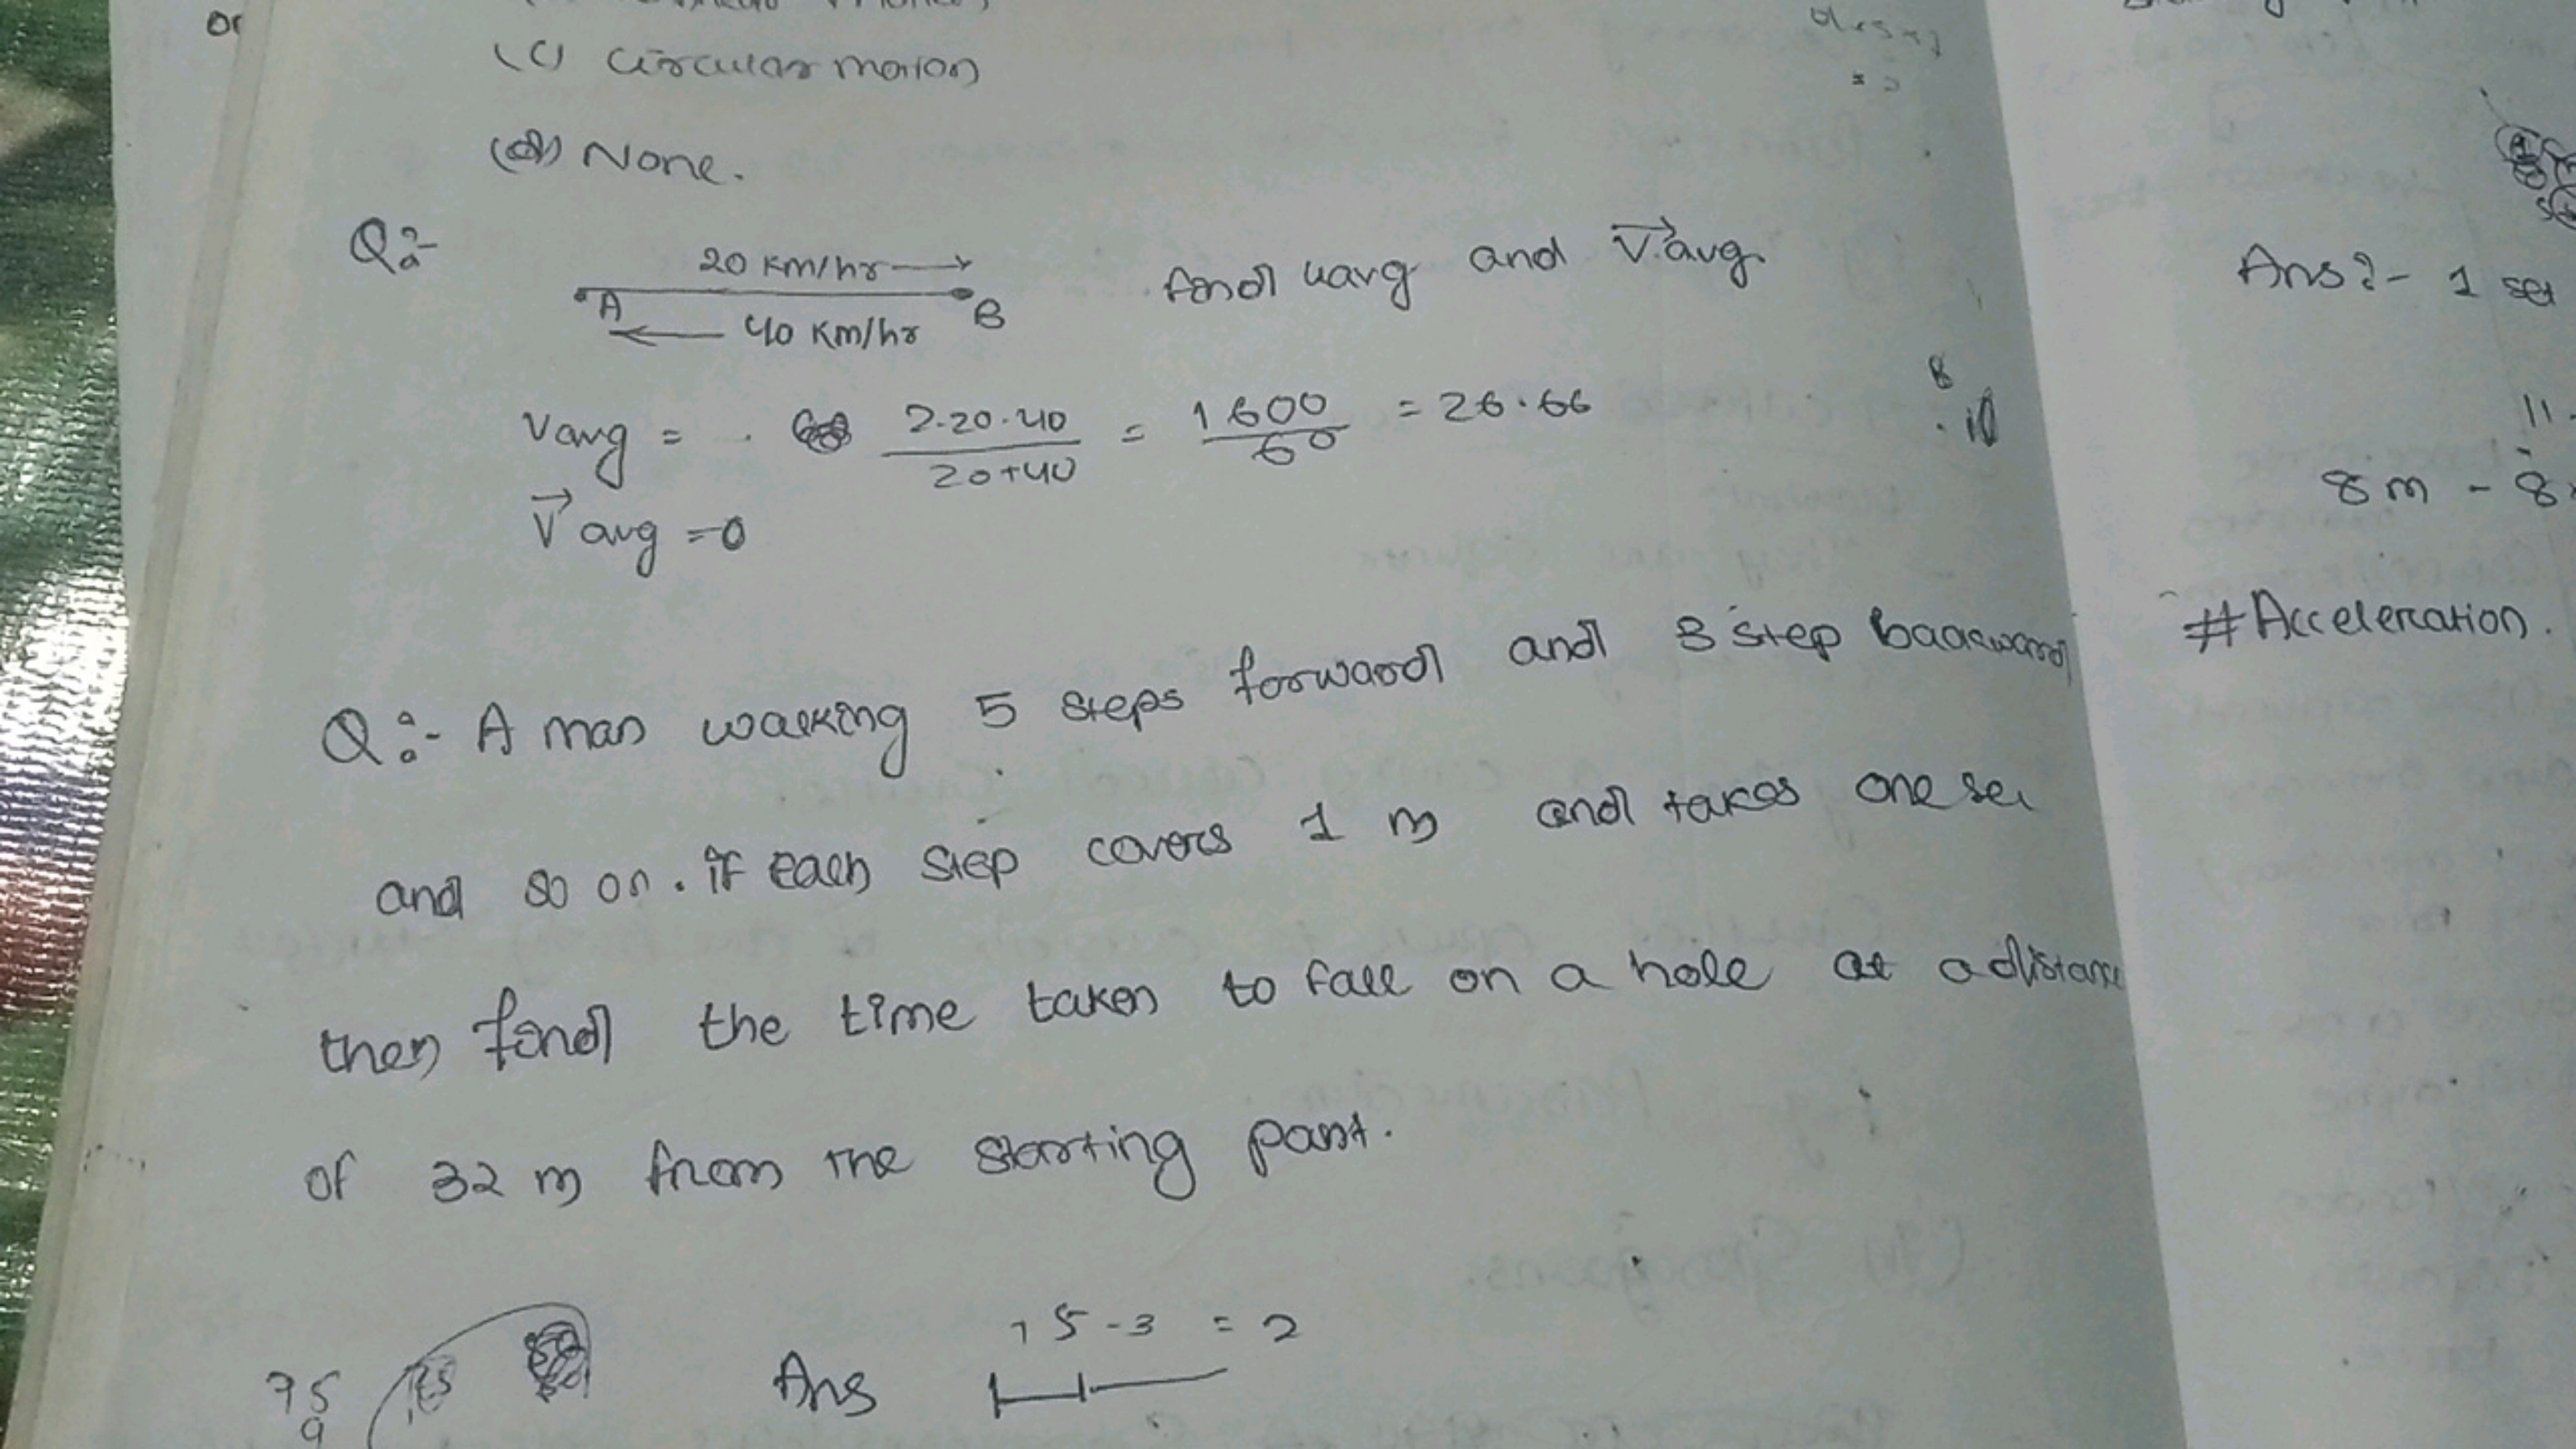 (c) Circular motion
(d) None.
Q:- 20 km/hr find uavg and V avg.
A B
40 km/hr
Vavg = 2.20.40 / 20+40 = 1600 / 60 = 26.66
V avg = 0
Q:- A man walking 5 steps forward and 3 step backward
and so on. if each step covers 1 m and takes one sec
then find the time taken to fall on a hole at a distance
of 32 m from the starting point.
5-3 = 2
Ans
75
Ans:- 1 sec
8m - 8
#Acceleration.